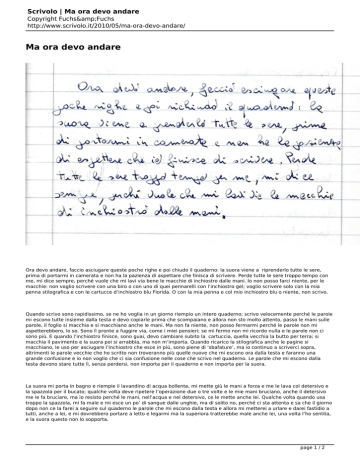 Scrivolo | Ma ora devo andare
Copyright Fuchs&amp;Fuchs
http://www.scrivolo.it/2010/05/ma-ora-devo-andare/
Ma ora devo andare
Ora devo andare, faccio asciugare queste
poche righe e poi richiudo il quaderno: la
suora viene a prenderlo tutte le sere, prima
di portarmi in camerata e non ha la pazienza
di aspettare che io finisca di scrivere. Perde
tutte le sere troppo tempo per me, mi dice
sempre, perché vuole che mi lavi via le macchie
di inchiostro dalle mani.
Ora devo andare, faccio asciugare queste poche righe e poi chiudo il quaderno: la suora viene a riprenderlo tutte le sere,
prima di portarmi in camerata e non ha la pazienza di aspettare che finisca di scrivere. Perde tutte le sere troppo tempo con
me, mi dice sempre, perché vuole che mi lavi via bene le macchie di inchiostro dalle mani. Io non posso farci niente, per le
macchie: non voglio scrivere con una biro o con uno di quei pennarelli con l'inchiostro gel; voglio scrivere solo con la mia
penna stilografica e con le cartucce d'inchiostro blu Florida. O con la mia penna e col mio inchiostro blu o niente, non scrivo.
Quando scrivo sono rapidissimo, se ne ho voglia in un giorno riempio un intero quaderno; scrivo velocemente perché le parole
mi escono tutte insieme dalla testa e devo copiarle prima che scompaiano e allora non sto molto attento, passo le mani sulle
parole, il foglio si macchia e si macchiano anche le mani. Ma non fa niente, non posso fermarmi perché le parole non mi
aspetterebbero, lo so. Sono lì pronte a fuggire via, come i miei pensieri; se mi fermo non mi ricordo nulla e le parole non ci
sono più. E quando l'inchiostro finisce, sono guai, devo cambiare subito la cartuccia, quella vecchia la butto per terra; si
macchia il pavimento e la suora poi si arrabbia, ma non m'importa. Quando ricarico la stilografica anche le pagine si
macchiano, le uso per asciugare l'inchiostro che esce in più, sono piene di 'sbafature', ma io continuo a scriverci sopra,
altrimenti le parole vecchie che ho scritto non troveranno più quelle nuove che mi escono ora dalla testa e faranno una
grande confusione e io non voglio che ci sia confusione nelle cose che scrivo nel quaderno. Le parole che mi escono dalla
testa devono stare tutte lì, senza perdersi, non importa per il quaderno e non importa per la suora.
La suora mi porta in bagno e riempie il lavandino di acqua bollente, mi mette giù le mani a forza e me le lava col detersivo e
la spazzola per il bucato; qualche volta deve ripetere l'operazione due o tre volte e le mie mani bruciano, anche il detersivo
me le fa bruciare, ma io resisto perché le mani, nell'acqua e nel detersivo, ce le mette anche lei. Qualche volta quando usa
troppo la spazzola, mi fa male e mi esce un po' di sangue dalle unghie, ma di solito no, perché ci sta attenta e sa che il giorno
dopo non ce la farei a seguire sul quaderno le parole che mi escono dalla testa e allora mi metterei a urlare e darei fastidio a
tutti, anche a lei, e mi dovrebbero portare a letto e legarmi ma la superiora tratterebbe male anche lei, una volta l'ho sentita,
e la suora questo non lo sopporta.
page 1 / 2